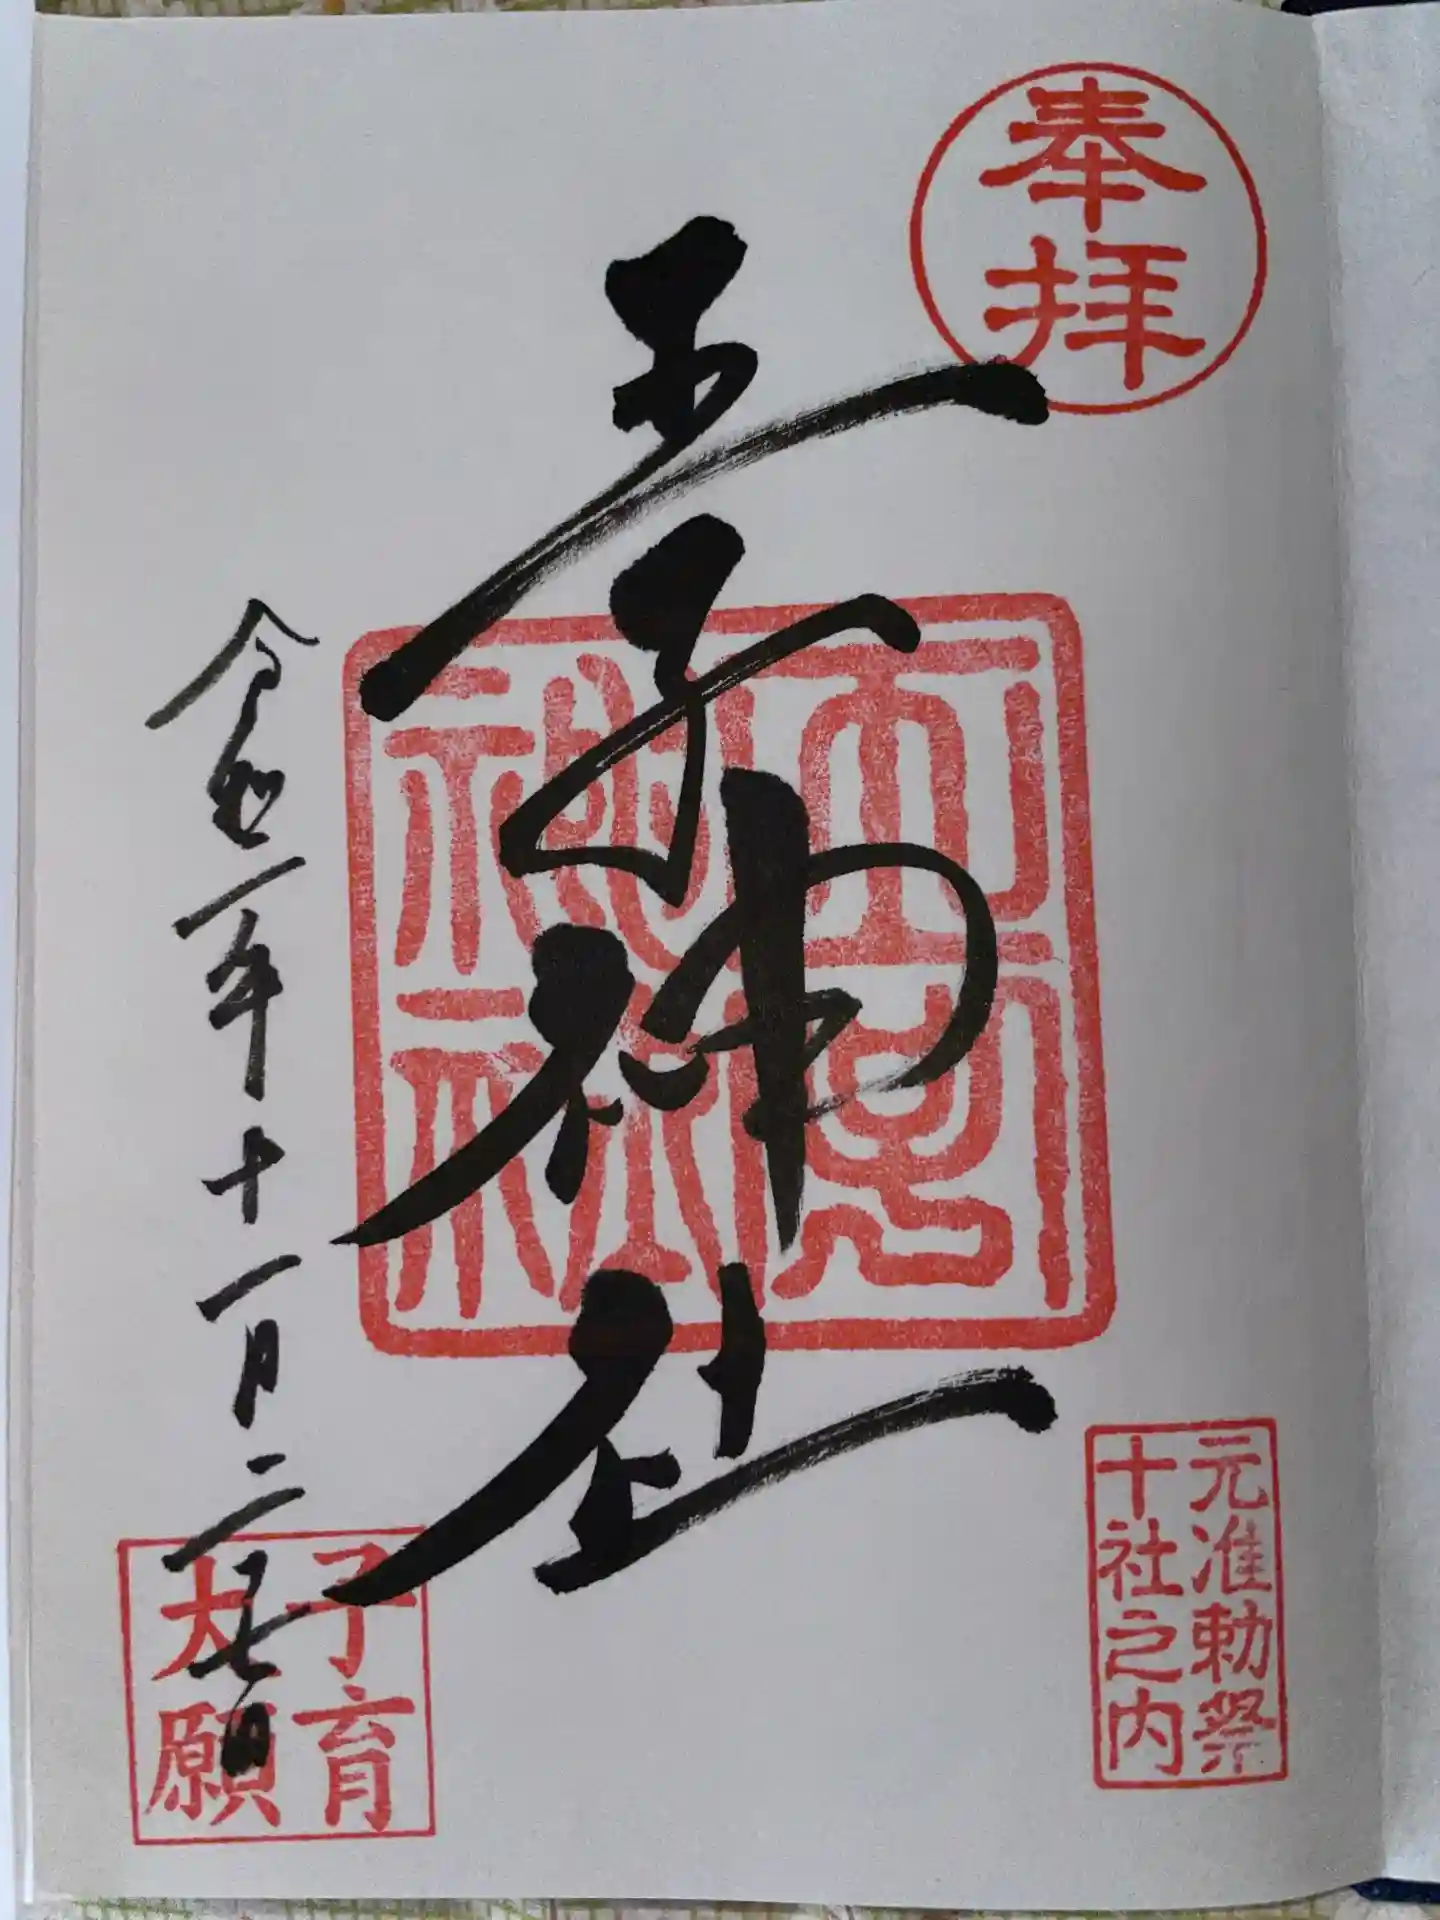 奉拝
王子神社
王子
神社
元准勅祭
十社之内
令和二年十一月二十七日
子育
大願